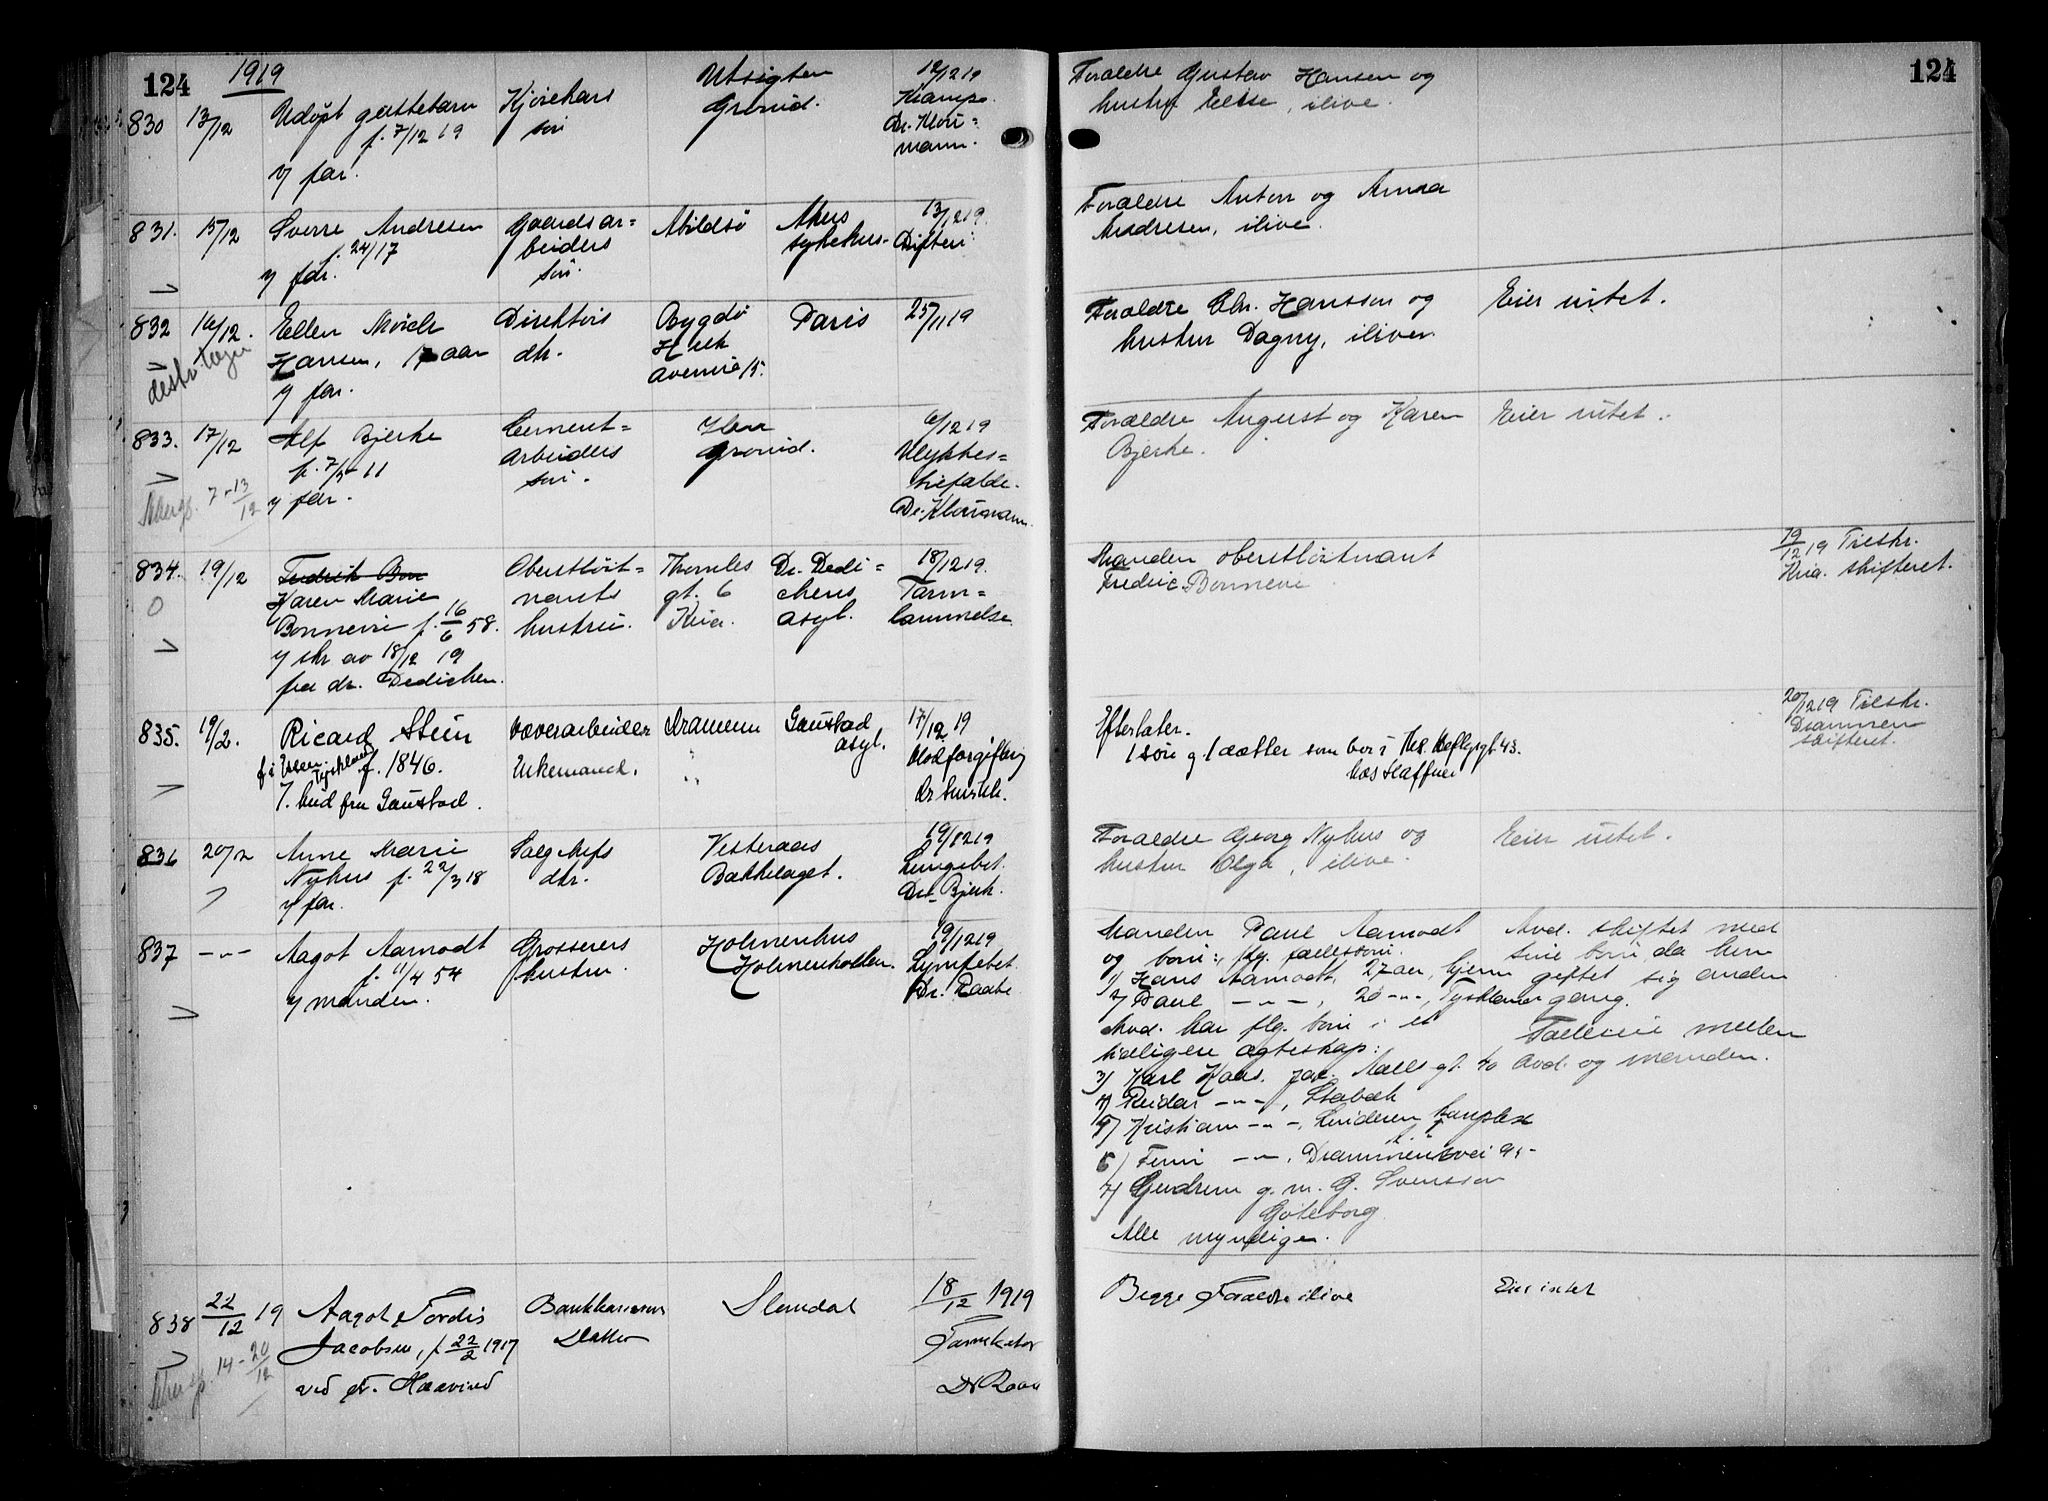 124
1919
830
13/12
Udøpt guttebarn
f. 7/12 19
v/ far.
Kjørekars
søn
Utsigten
Grorud.
12/12 19
Krampe.
Dr. Klou=
mann.
Forældre Gustav Hansen og
hustru Else, ilive.
124
831.
15/12
Sverre Andresen
f. 24/17
v/ far.
Gaardsar=
beiders
søn.
Abildsø
Akers
sykehus.
13/12 19.
Difteri.
Forældre Anton og Anna
Andresen, ilive.
832
16/12.
Ellen
Hansen, 17 aar
v/ far.
Direktørs
dtr.
Bygdø
Hulk
avenue 15.
Paris
25/11 19
Forældre Chr. Hansson og
hustru Dagny, ilive.
Eier intet.
833.
17/12
Alf Bjerke
f. 7/5 11
v/ far.
Akersp. 7-13/12
Cement=
arbeiders
søn.
Grorud.
6/12 19
Ulykkes=
tilfælde.
Dr. Kloumann.
Forældre August og Karen
Bjerke.
Eier intet.
834.
19/12
Fredrik Bon
Karen Marie
Bonnevie f. 16/6 58.
v/ skr av 18/12 19
fra dr. Dedichen.
Oberstløit=
nants
hustru.
Thomles
gt. 6
Kria.
Dr. Dedi=
chens
asyl.
18/12 19.
Tarm=
lammelse.
Manden oberstløitnant
Fredric Bonnevie
19/12 19 Tilskr.
Kria. skifteret.
835.
19/12.
Ricard Stein
f i Essen. Tyskland f. 1846.
v/. bud fra Gaustad.
Væverarbeider
Enkemand.
Drammen
Gaustad
asyl.
17/12 19
Blodforgiftning
Efterlater.
1 søn og 1 datter som bor i
hos Haffner
20/12 19 Tilskr.
Drammen
skifteret.
836
20/12
Anne Marie
Nyhus f. 22/3 18
v/ far.
Salgschefs
dtr.
Vesteraas
Bækkelaget.
19/12 19
Lungebet.
Dr. Bjerk.
Forældre Georg Nyhus og
hustru Olga, ilive.
Eier intet.
837
-"-
Aagot Aamodt
f. 11/4 54
v/ manden.
Grosserers
hustru.
Holmenhus
Holmenkollen.
19/12 19
Lungebet.
Dr. Raabe
Manden Paul Aamodt
og børn:, flg. fællesbørn:
1) Hans Aamodt, 27 aar, hjem
2) Paul -"-, 20 -"-, Tyskland
Avd. har flg. børn i et
tidligere ægteskap:
3) Karl Haas.
4) Reidar -"-, Stabæk
5) Kristian -"-, Linderen
6) Finn -"-, Drammensvei 95-
7) Gudrun g. m. G. Svensson
Gøteborg
Alle myndige.
Avd. skiftet med
sine børn, da hun
giftet sig anden
gang.
Fælleseie mellem
avd. og manden.
838
22/12 19
Aagot Tordis
Jacobsen, f. 22/2 1917
ved fr. Haavind
Akersp. 14-20/12
Bankkasserer
Datter
Slemdal
18/12 1919
Tarmkatar
Dr Raabe
Begge Forældre ilive
Eier intet